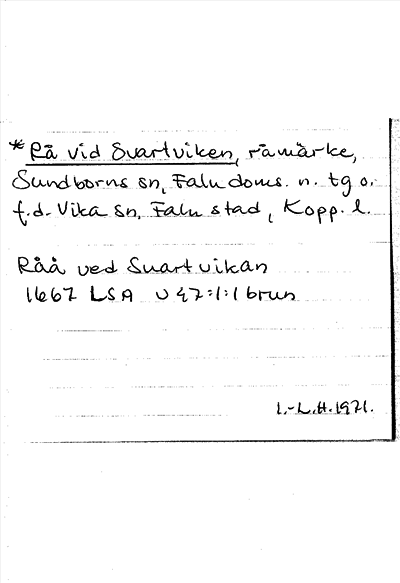 *Rå vid Svartviken, råmärke,
Sundborns sn, Falu doms. n. tg o.
f.d. Vika sn, Falu stad, Kopp. l.
Råå ved Suartuikan
1667 LSA U 47:1:1 brun
I.-L.H. 1971.